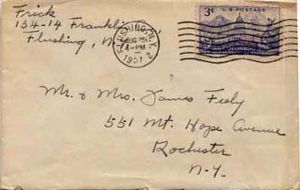 Frick
134-14 Franklin
Flushing, N.
FLUSHING, N.Y. 2
AUG
4-PM
1957
3¢ U.S. POSTAGE
Mr & Mrs. James Fealy
551 Mt. Hope Avenue
Rochester
N.Y.